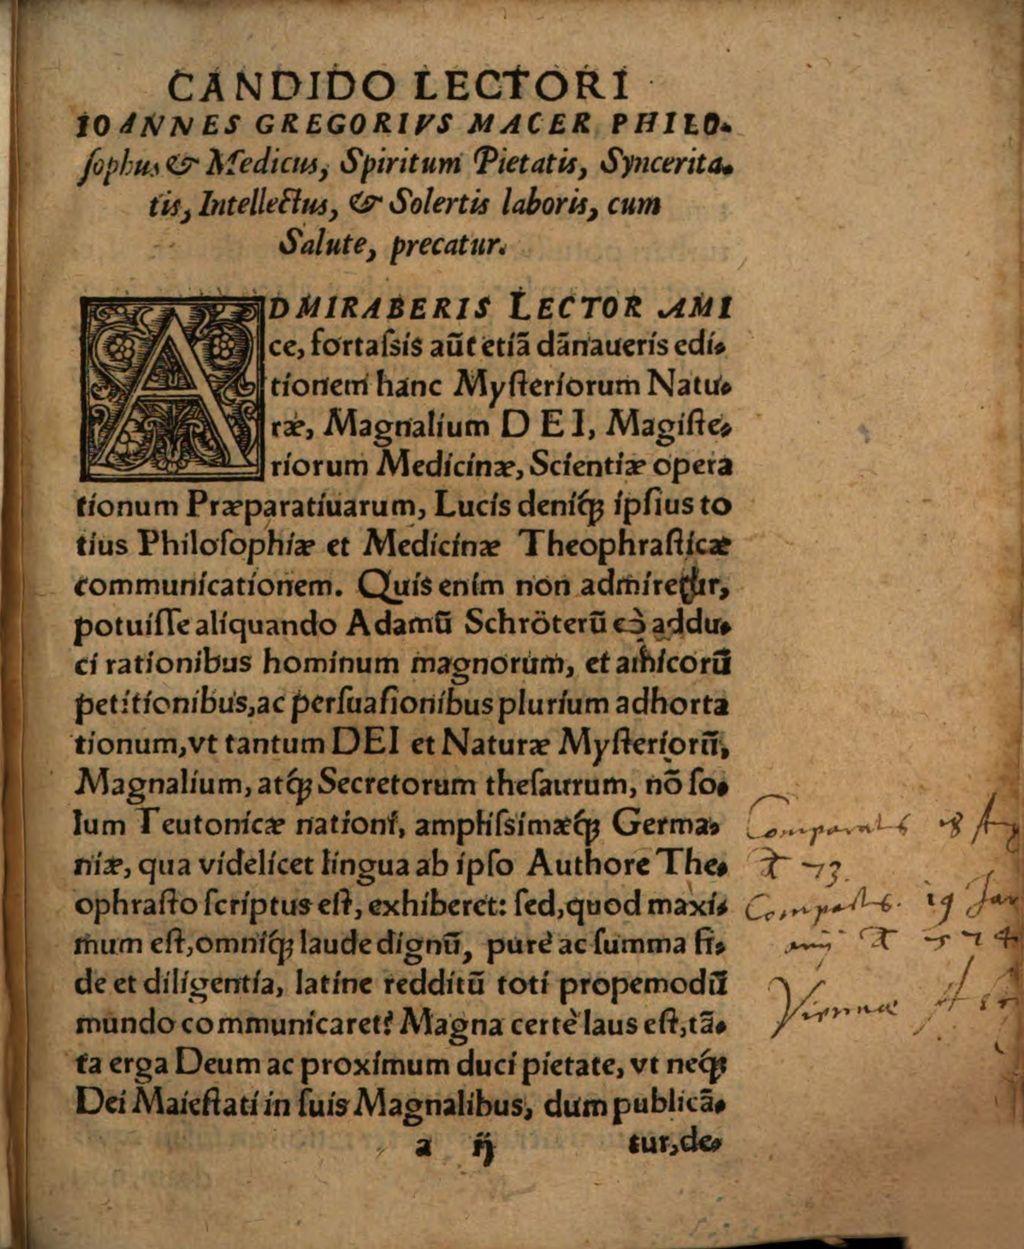 CANDIDO LECTORI
IOANNES GREGORIVS MACER PHILO-
ſophus & Medicus, Spiritum Pietatis, Syncerita-
tis, Intellectus, & Solertis laboris, cum
Salute, precatur.
ADMIRABERIS LECTOR AMI
ce, fortaſsis aūt etiā dānaueris edi-
tionem hanc Myſteriorum Natu-
ræ, Magnalium DEI, Magiſte-
riorum Medicinæ, Scientiæ opera
tionum Præparatiuarum, Lucis deniq́ꝫ ipſius to
tius Philoſophiæ et Medicinæ Theophraſticæ
communicationem. Quis enim non admiretur,
potuiſſe aliquando Adamū Schröterū eò addu-
ci rationibus hominum magnorum, et amicorū
petitionibus,ac perſuaſionibus plurium adhorta
tionum,vt tantum DEI et Naturæ Myſteriorū,
Magnalium, atq́ꝫ Secretorum theſaurum, nō ſo-
lum Teutonicæ nationi, ampliſsimæq́ꝫ Germa-
niæ, qua videlicet lingua ab ipſo Authore The-
ophraſto ſcriptus eſt, exhiberet: ſed,quod maxi-
mum eſt,omniq́ꝫ laude dignū, purè ac ſumma fi-
de et diligentia, latine redditū toti propemodū
mundo communicaret? Magna certè laus eſt,tā-
ta erga Deum ac proximum duci pietate, vt neq́ꝫ
Dei Maieſtati in ſuis Magnalibus, dum publicā-
a ij tur,de-
18
73.
19 Jan
Viennæ